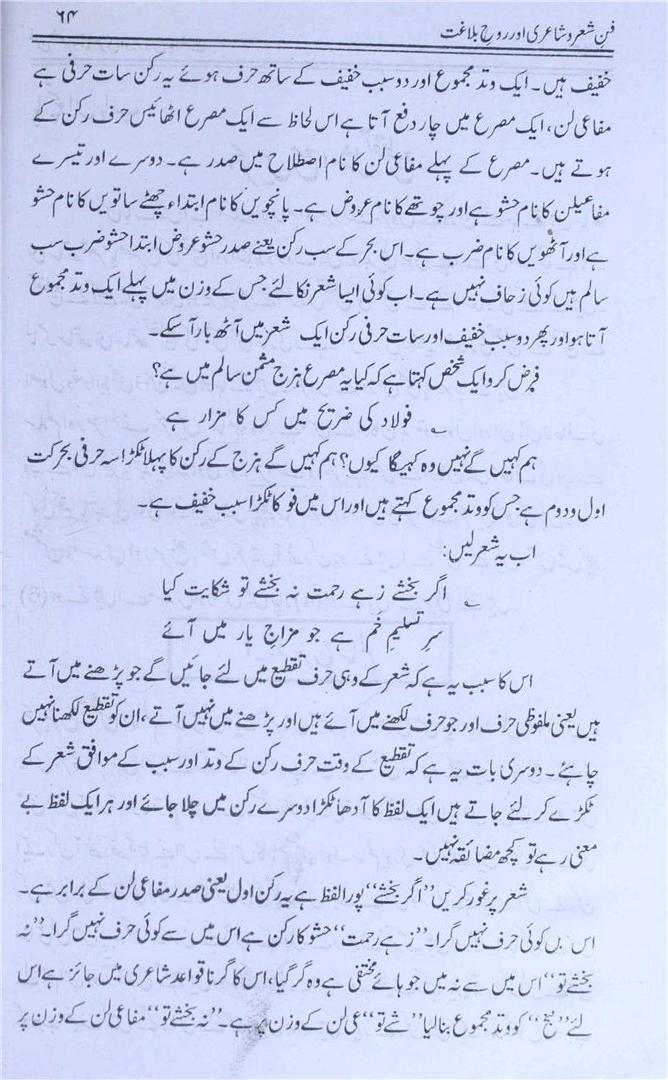 فنِ شعر و شاعری اور روحِ بلاغت
۶۴
خفیف ہیں۔ ایک وتد مجموع اور دو سبب خفیف کے ساتھ حرف ہوئے یہ رکن سات حرفی ہے
مفاعی لن، ایک مصرع میں چار دفع آتا ہے اس لحاظ سے ایک مصرع اٹھائیس حرف رکن کے
ہوتے ہیں۔ مصرع کے پہلے مفاعی لن کا نام اصطلاح میں صدر ہے۔ دوسرے اور تیسرے
مفاعیلن کا نام حشو ہے اور چوتھے کا نام عروض ہے۔ پانچویں کا نام ابتداء چھٹے ساتویں کا نام حشو
ہے اور آٹھویں کا نام ضرب ہے۔ اس بحر کے سب رکن یعنے صدر حشو عروض ابتدا حشو ضرب سب
سالم ہیں کوئی زحاف نہیں ہے۔ اب کوئی ایسا شعر نکالئے جس کے وزن میں پہلے ایک وتد مجموع
آتا ہو اور پھر دو سبب خفیف اور سات حرفی رکن ایک شعر میں آٹھ بار آسکے۔
فرض کرو ایک شخص کہتا ہے کہ کیا یہ مصرع ہزج مثمن سالم میں ہے؟
فولاد کی ضریح میں کس کا مزار ہے
ہم کہیں گے نہیں وہ کہیگا کیوں؟ ہم کہیں گے ہزج کے رکن کا پہلا ٹکڑا سہ حرفی بحرکت
اول و دوم ہے جس کو وتد مجموع کہتے ہیں اور اس میں فو کا ٹکڑا سبب خفیف ہے۔
اب یہ شعر لیں:
اگر بخشے زہے رحمت نہ بخشے تو شکایت کیا
سرِ تسلیم خم ہے جو مزاجِ یار میں آئے
اس کا سبب یہ ہے کہ شعر کے وہی حرف تقطیع میں لئے جائیں گے جو پڑھنے میں آتے
ہیں یعنی ملفوظی حرف اور جو حرف لکھنے میں آئے ہیں اور پڑھنے میں نہیں آتے، ان کو تقطیع لکھنا نہیں
چاہئے۔ دوسری بات یہ ہے کہ تقطیع کے وقت حرف رکن کے وتد اور سبب کے موافق شعر کے
ٹکڑے کر لئے جاتے ہیں ایک لفظ کا آدھا ٹکڑا دوسرے رکن میں چلا جائے اور ہر ایک لفظ بے
معنی رہے تو کچھ مضائقہ نہیں۔
شعر پر غور کریں ”اگر بخشے“ پورا لفظ ہے یہ رکن اول یعنی صدر مفاعی لن کے برابر ہے۔
اس میں کوئی حرف نہیں گرا۔ ”زہے رحمت“ حشو کا رکن ہے اس میں سے کوئی حرف نہیں گرا۔ ”نہ
بخشے تو“ اس میں سے نہ میں جو ہائے مختفی ہے وہ گر گیا، اس کا گرنا قواعد شاعری میں جائز ہے اس
لئے ”بخ“ کو وتد مجموع بنالیا ”شے تو“ عی لن کے وزن پر ہے۔ ”نہ بخشے تو“ مفاعی لن کے وزن پر